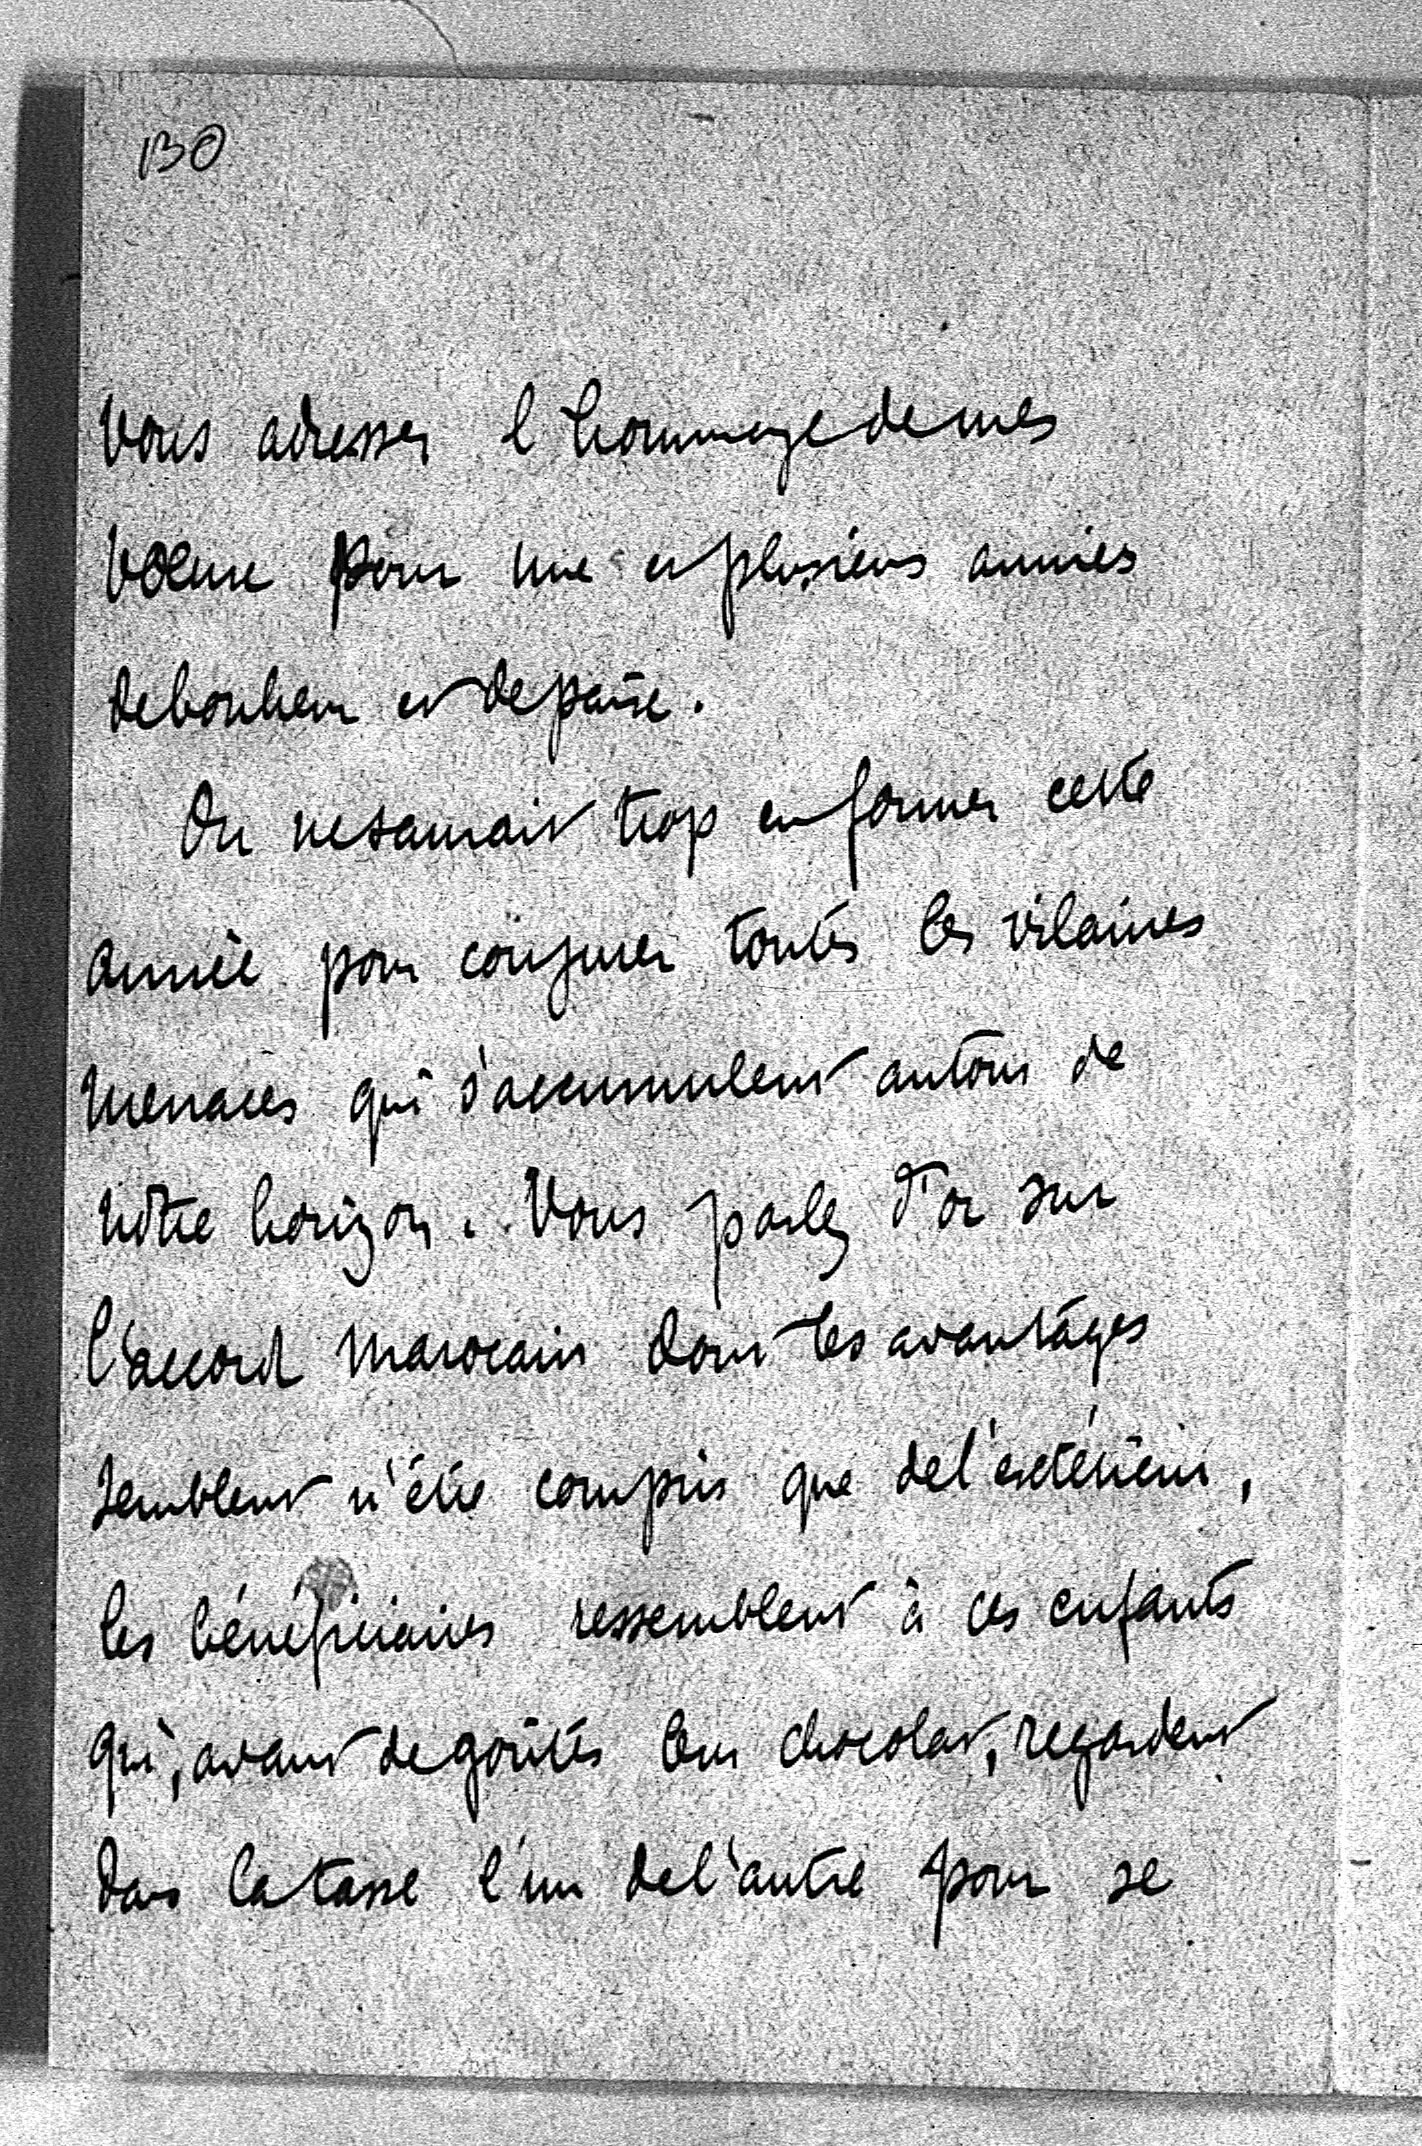 130
vous adresser l'hommage de mes
vœux pour une et plusieurs années
de bonheur et de paix.
On ne saurait trop en former cette
année pour conjurer toutes les vilaines
menaces qui s'accumulent autour de
notre horizon. Vous parlez d'or sur
l'accord marocain dont les avantages
semblent n'être compris que de l'extérieur,
les bénéficiaires ressemblent à ces enfants
qui, avant de goûter leur chocolat, regardent
dans la tasse l'un de l'autre pour se